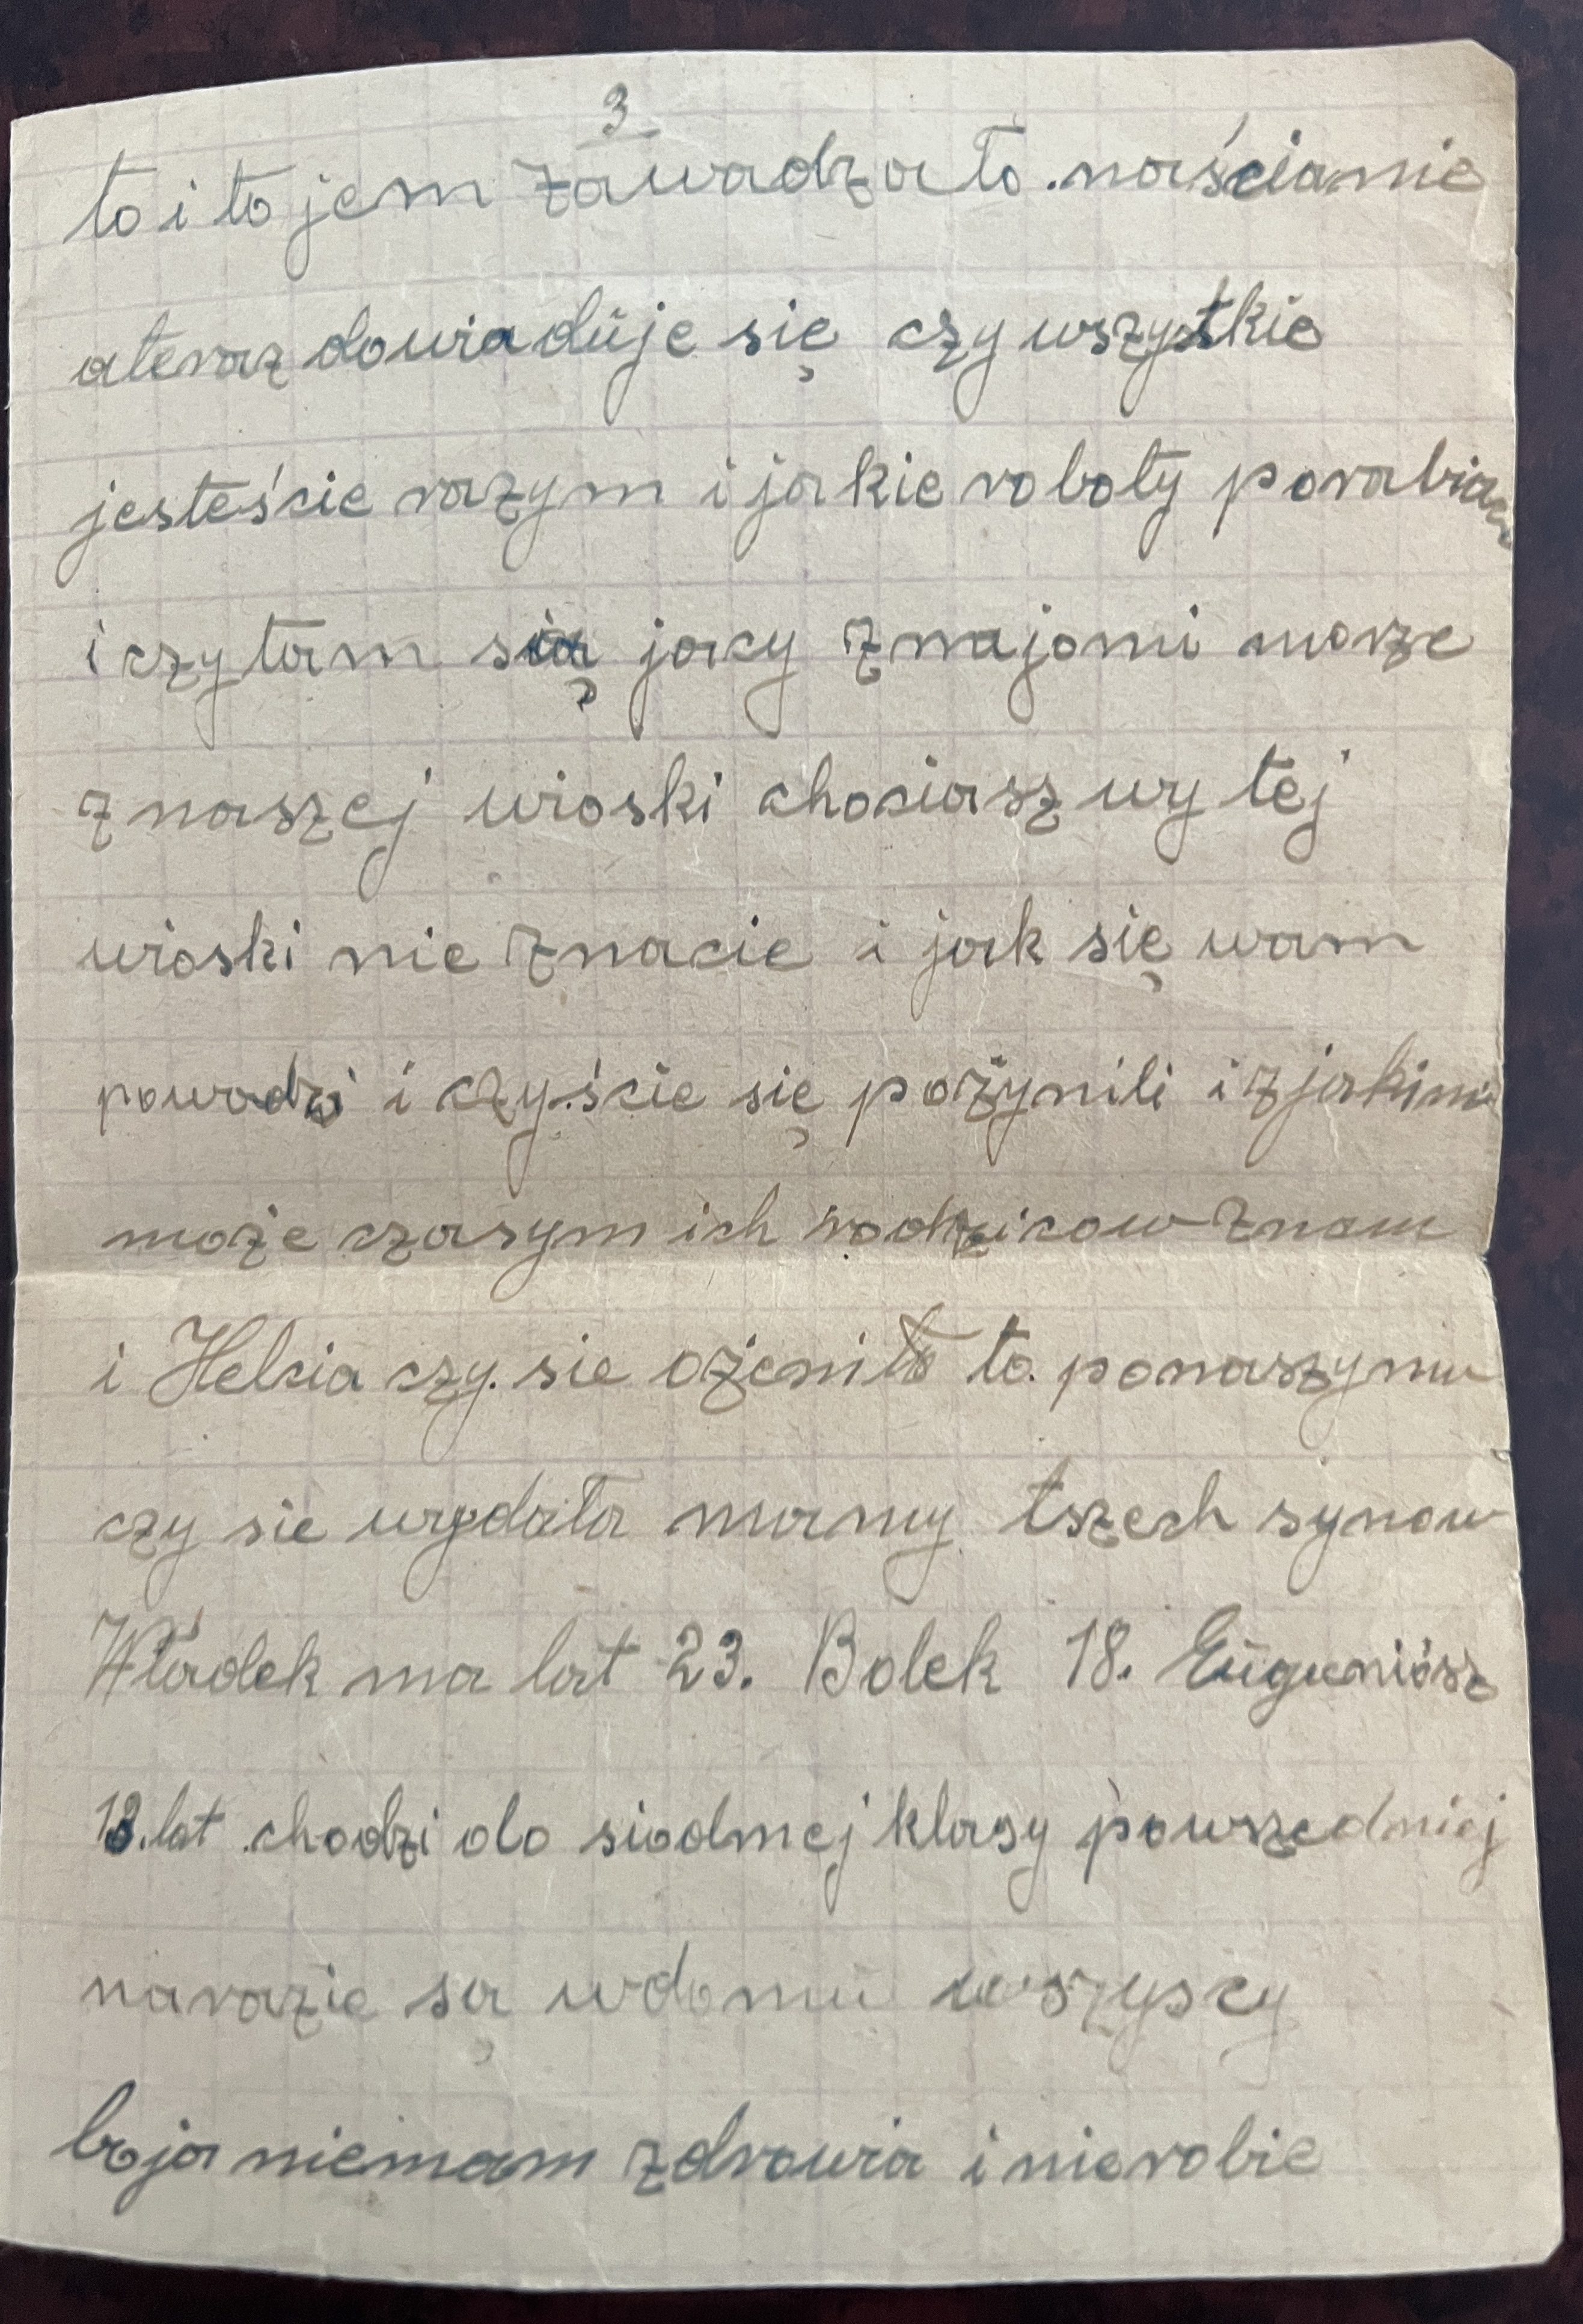 3
to i to jem zawadzało. naścianie
ateraz dowiaduje się czy wszystkie
jesteście razym i jakie roboty porabiacie
i czy tam są jacy znajomi morze
z naszej wioski chociasz wy tej
wioski nie znacie i jak się wam
powodzi i czyście się pożynili i z jakimi
może czasym ich rodzicow znam
i Helcia czy. sie ożeniła to. ponaszymu
czy sie wydała mamy tszech synow
Władek ma lat 23. Bolek 18. Eugeniósz
13. lat chodzi do siodmej klasy powszedniej
narazie są wdomu wszyscy
bo ja niemam zdrowia i nierobie